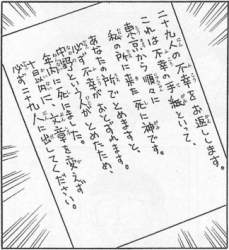 二十九人の不幸をお返しします。
これは不幸の手紙といって、
東京から順々に
私の所に来た死に神です。
あなたの所でとめますと、
必ず不幸がおとずれます。
中野という人がとめたため、
年内に死にました。
十日以内に文章を変えず
必ず二十九人に出してください。